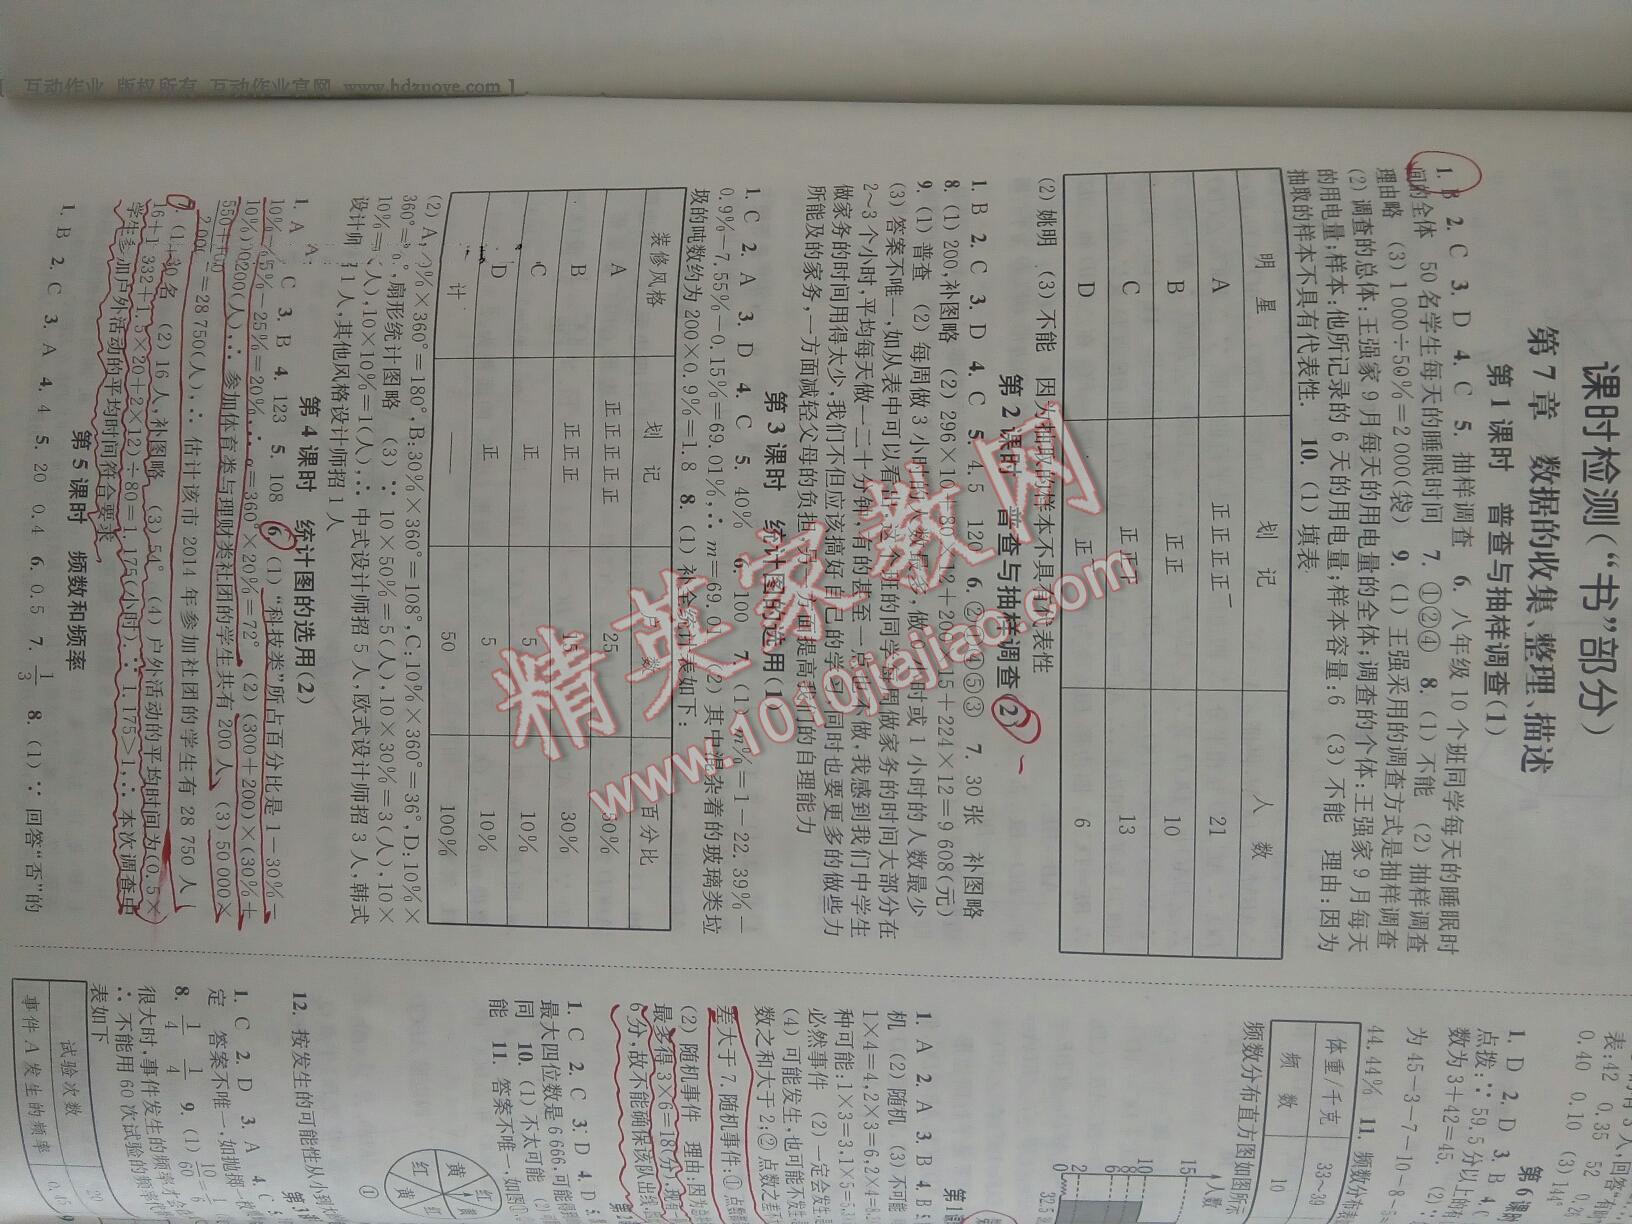 互动作业 版权所有 互动作业官网 www.hdzuoye.com ]
课时检测(“书”部分)
第7章 数据的收集、整理、描述
第1课时 普查与抽样调查(1)
1. B 2. C 3. D 4. C 5. 抽样调查 6. 八年级10个班同学每天的睡眠时
间的全体 50名学生每天的睡眠时间 7. ①②④ 8. (1) 不能 (2) 抽样调查
理由略 (3) 1 000÷50%=2 000(袋) 9. (1) 王强采用的调查方式是抽样调查
(2) 调查的总体:王强家9月每天的用电量的全体;调查的个体:王强家9月每天
的用电量;样本:他所记录的6天的用电量;样本容量:6 (3) 不能 理由:因为
抽取的样本不具有代表性. 10. (1) 填表
明星 划记 人数
A 正正正正一 21
B 正正 10
C 正正 13
D 正 6
(2) 姚明 (3) 不能 因为抽取的样本不具有代表性
第2课时 普查与抽样调查(2)
1. B 2. C 3. D 4. C 5. 4.5 120 6. ②①④⑤③ 7. 30张 补图略
8. (1) 200,补图略 (2) 296×10+80×12+200×15+224×12=9 608(元)
9. (1) 普查 (2) 每周做3小时的人数最多,做0小时或1小时的人数最少
(3) 答案不唯一,如从表中可以看出,这个班的同学每周做家务的时间大部分在
2~3个小时,平均每天做一二十分钟,有的甚至一点也不做,我感到我们中学生
做家务的时间用得太少,我们不但应该搞好自己的学习,同时也要更多的做些力
所能及的家务,一方面减轻父母的负担,另一方面提高我们的自理能力
第3课时 统计图的选用(1)
1. C 2. A 3. D 4. C 5. 40% 6. 100 7. (1) m%=1-22.39%-
0.9%-7.55%-0.15%=69.01%,∴ m=69.01 (2) 其中混杂着的玻璃类垃
圾的吨数约为200×0.9%=1.8 8. (1) 补全统计表如下:
装修风格 划记 户数 百分比
A 正正正正正 25 50%
B 正正正 15 30%
C 正 5 10%
D 正 5 10%
计 — 50 100%
(2) A: %×360°=180°,B:30%×360°=108°,C:10%×360°=36°,D:10%×
360°= °,扇形统计图略 (3) ∵ 10×50%=5(人),10×30%=3(人),10×
10%= (人),10×10%=1(人),∴ 中式设计师招5人,欧式设计师招3人,韩式
设计师 1人,其他风格设计师招1人
第4课时 统计图的选用(2)
1. A A C 3. B 4. 123 5. 108 6. (1) “科技类”所占百分比是1-30%-
10%-15%-25%=20%,∴ α=360°×20%=72° (2) (300+200)×(30%+
10%)=200(人),∴ 参加体育类与理财类社团的学生共有200人 (3) 50 000×
=28 750(人),∴ 估计该市2014年参加社团的学生有28 750人
(1) 30名 (2) 16人,补图略 (3) 54° (4) 户外活动的平均时间为(0.5×
16+1 332+1.5×20+2×12)÷80=1.175(小时).∵ 1.175>1,∴ 本次调查中
学生参加户外活动的平均时间符合要求
第5课时 频数和频率
1. B 2. C 3. A 4. 4 5. 20 0.4 6. 0.5 7. 1/3 8. (1) ∵ 回答“否”的
表:42 0.35 52
0.40 0.10 (3) 144°
第6课时
1. D 2. D 3. B 4.
点拨:∵ 59.5分以上的
数为3+42=45. (2)
为45-3-7-10-8-5
44.44% 11. 频数分布
体重/千克 33~39
频数 10
频数分布直方图如图所示
人数
15
10
8
6
2
0
32.5
1. A 2. A 3. B 4. B 5
机 (2) 随机 (3) 不可能
1×4=4,2×3=6,2×4=8
种可能:1×3=3,1×5=5
必然事件 (2) 一定会发生
(4) 可能发生,也可能不发生
数之和大于2;②点数之差
差大于7. 随机事件:①点
(2) 随机事件 理由:因为
最多得3×6=18(分),现有
6分,故不能确保该队出线
1. C 2. C 3. D 4. D 5
最大四位数是6 666,可能得
同 10. (1) 不太可能 (2)
能 11. 答案不唯一,如图①
红 黄 红 黄
①
12. 按发生的可能性从小到大
1. C 2. D 3. A 4. C 5
定 答案不唯一,如抛掷一枚
8. 1/4 1/4 9. (1) 10/60=1/6
很大时,事件发生的频率才会
∴ 不能用60次试验的频率
表如下
试验次数 20
事件A发生的频率 0.45
精英家教网
www.1010jiajiao.com